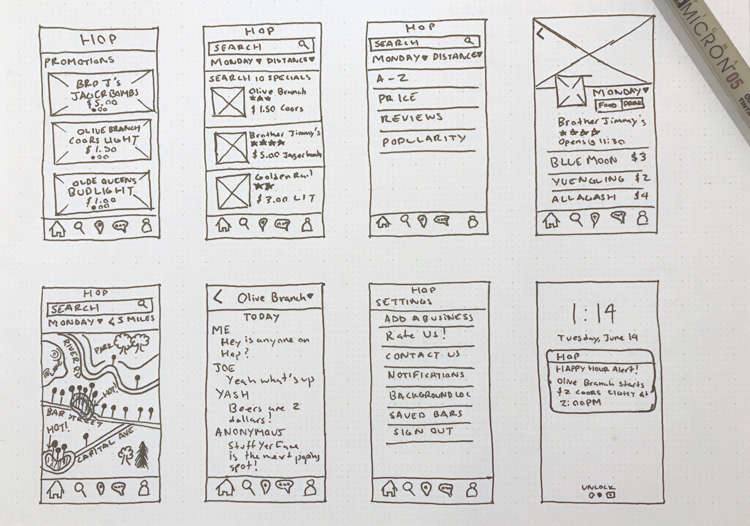 HOP
PROMOTIONS
BRO J's
JAGERBOMBS
$5.00
OLIVE BRANCH
COORS LIGHT
$1.50
OLDE QUEENS
BUDLIGHT
$1.00
HOP
SEARCH
MONDAY DISTANCE
SEARCH 10 SPECIALS
Olive Branch
$1.50 Coors
Brother Jimmy's
$5.00 Jagerbomb
Golden Rail
$3.00 LIT
HOP
SEARCH
MONDAY DISTANCE
A-Z
PRICE
REVIEWS
POPULARITY
MONDAY
FOOD DRINK
Brother Jimmy's
Opens @ 11:30
BLUE MOON $3
YUENGLING $2
ALLAGASH $4
MICRON 05
HOP
SEARCH
MONDAY <5 MILES
RIVER RD
PARK
HOT!
BAR STREET
HOT!
CAPITAL AVE
Olive Branch
TODAY
ME
Hey is anyone on
Hop?
JOE
Yeah what's up
YASH
Beers are 2
dollars!
ANONYMOUS
Stuff Yer Face
is the next poppin
spot!
HOP
SETTINGS
ADD A BUSINESS
Rate Us!
CONTACT US
NOTIFICATIONS
BACKGROUND LOC
SAVED BARS
SIGN OUT
1:14
Tuesday, June 14
HOP
HAPPY HOUR Alert!
Olive Branch starts
$2 COORS LIGHT at
2:00PM
UNLOCK